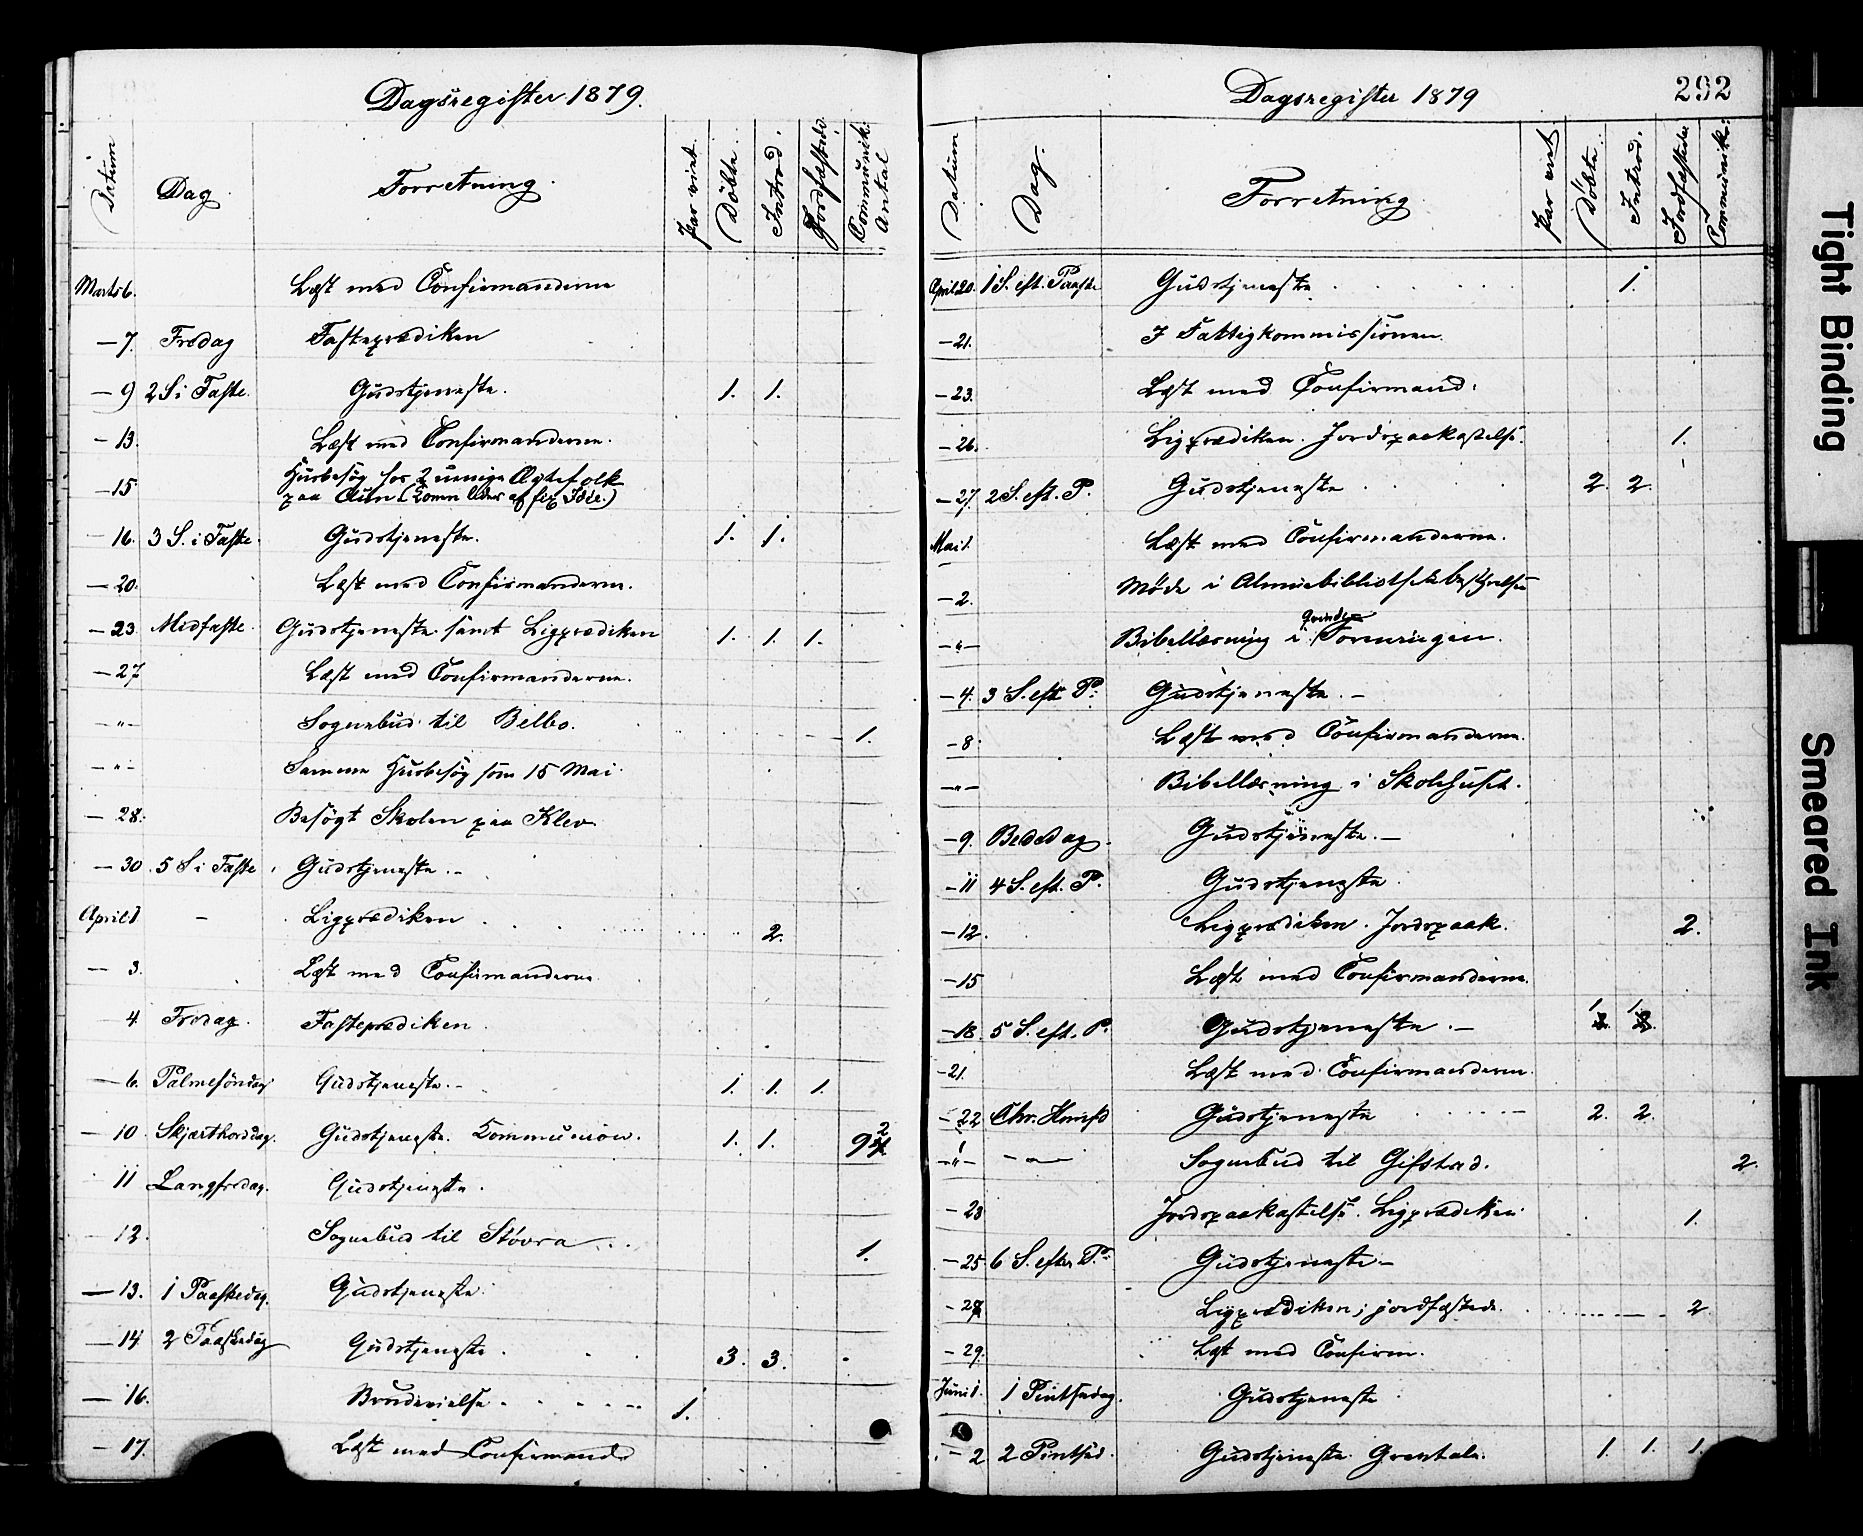 Dagsregister 1879.
Datum Dag. Forretning. Par viet. Döbte. Introd. Jordfæstede Communik: Antal
Marts 6. Læst med Confirmanderne
— 7. Fredag Fasteprædiken
— 9 2 S i Faste. Gudstjeneste. 1. 1.
— 13. Læst med Confirmanderne.
— 15. Husbesøg hos 2 uenige Ægtefolk
paa Aun
— 16. 3 S. i Faste. Gudstjeneste. 1. 1.
— 20. Læst med Confirmanderne.
— 23 Midfaste. Gudstjeneste samt Ligprædiken 1. 1. 1.
— 27 Læst med Confirmanderne.
— " — Sognebud til Belbo. 1.
— " — Samme Husbesøg som 15 Mai.
— 28. Besøgt Skolen paa Klev.
— 30. 5 S i Faste Gudstjeneste. —
April 1 — Ligprædiken 2.
— 3. Læst med Confirmanderne
4 Fredag. Fasteprædiken.
— 6. Palmesöndag Gudstjeneste. — 1. 1. 1.
— 10. Skjærthorsdag. Gudstjeneste. Kommunion. 1. 1. 92
11 Langfredag. Gudstjeneste.
— 12. Sognebud til Støvra 1.
— 13. 1 Paaskedag. Gudstjeneste.
— 14 2 Paaskedag Gudstjeneste. 3. 3.
— 16. Brudevielse. 1.
— 17. Læst med Confirmand.
Dagsregister 1879
292
Datum Dag. Forretning Par viet. Döbte. Introd. Jordfæstede Communik:
April 20. 1 S. eft. Paaske Gudstjeneste 1.
— 21. I Fattigkommissionen.
— 23. Læst med Confirmand:
— 26. Ligprædiken. Jordspaakastelse. 1.
— 27. 2 S. eft. P. Gudstjeneste 2. 2.
Mai 1. Læst med Confirmanderne.
— 2. Møde i Almuebibliothekbestyrelsen
— " — Bibellæsning i Foreningen.
— 4. 3 S. eft P. Gudstjeneste. —
— 8. Læst med Confirmanderne.
— " — Bibellæsning i Skolehuset.
— 9. Bededag. Gudstjeneste. —
— 11 4 S. eft. P. Gudstjeneste
— 12. Ligprædiken. Jordspaak. 2.
— 15 Læst med Confirmanderne.
— 18. 5 S. eft. P. Gudstjeneste. — 1. 1.
— 21. Læst med Confirmanderne.
— 22 Chr. Himfd Gudstjeneste 2. 2.
— " — — " — Sognebud til Gifstad. 2.
— 23 Jordspaakastelse. Ligprædiken. 1.
— 25. 6 S. efter P. Gudstjeneste —
— 28 Ligprædiken; jordfæstede. 2.
— 29. Læst med Confirm.
Juni 1. 1 Pintsedag. Gudstjeneste
— 2 2 Pintsed. Gudstjeneste. Gravtale. 1. 1. 1.
Tight Binding
Smeared Ink